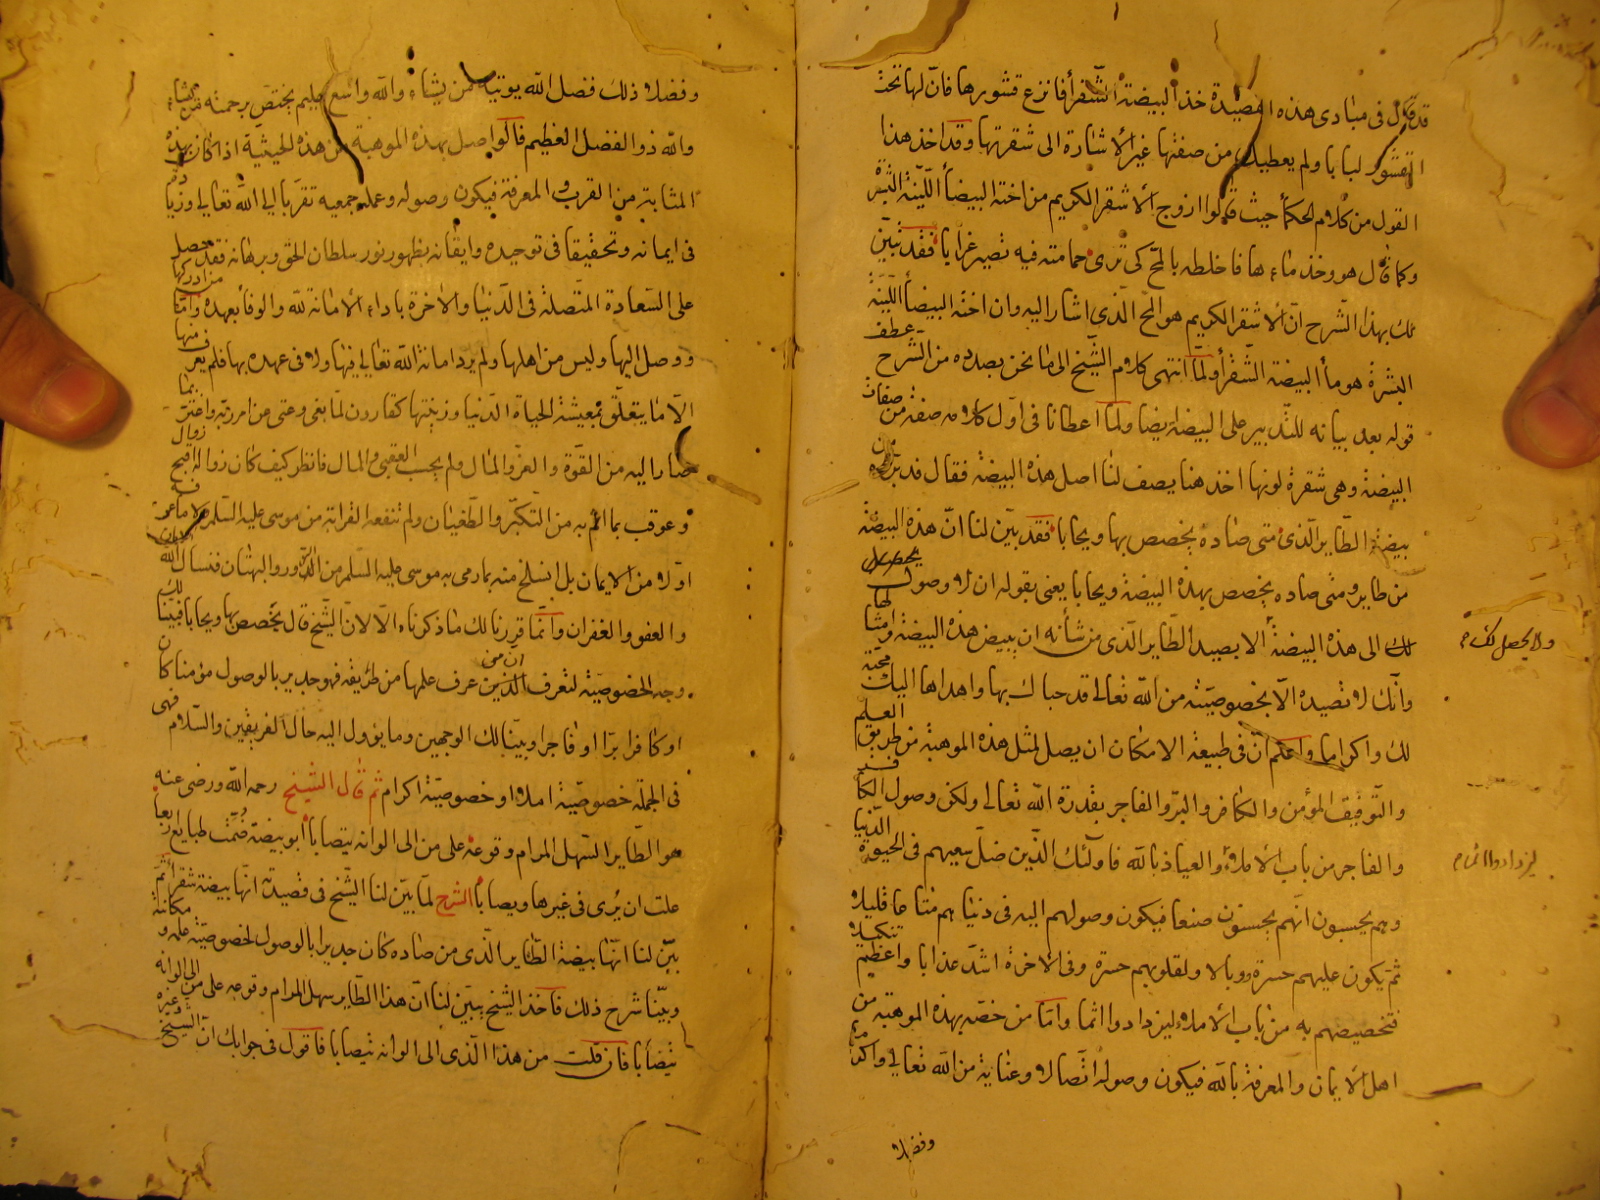 قد قال فى مبادى هذه القصيدة خذ البيضة الشقرأ فانزع قشورها فانّ لها تحت
القشور لبابا ولم يعطيك من صفتها غير الأشارة الى شقرتها وقد اخذ هذا
القول من كلام الحكمأ حيث قالوا ازوج الأشقر الكريم من اخته البيضأ اللّيّنة البشرة
وكما قال هو وخذ ماءها فاخلطه بالمح كى ترى حمامته فيه تصير غرابا فقد تبيّن
لك بهذا الشّرح انّ الأشقر الكريم هو المح الّذى اشار اليه وان اخته البيضأ اللّيّنة
البشرة هو مأ البيضة الشّقرأ ولمّا انتهى كلام الشّيخ الى ما نحن بصدده من الشّرح عطف
قوله بعد بيانه للتّدبير على البيضة ايضا ولمّا اعطانا فى اوّل كلامه صفة من صفات
البيضة وهى شقرة لونها اخذ هنا يصف لنا اصل هذه البيضة فقال
بيضة الطّاير الّذى متى صاده يخصص بها ويحابا فقد بيّن لنا انّ هذه البيضة
من طاير ومتى صاده يخصص بهذه البيضة ويحابا يعنى بقوله ان لا وصول
لك الى هذه البيضة الا بصيد الطّاير الّذى من شأنه ان يبيض هذه البيضة وامثالها
وانّك لا تصيده الّا بخصوصيّته من اللّه تعالى قد حباك بها واهداها اليك محبّة
لك واكراما واعلم انّ فى طبيعة الامكان ان يصل لمثل هذه الموهبة من طريق العلم
والتّوفيق المؤمن والكافر والبرّ والفاجر بقدرة اللّه تعالى ولكن وصول الكافر
والفاجر من باب الأملاء والعياذ باللّه فاولئك الّذين ضلّ سعيهم فى الحيوة الدّنيا
وهم يحسبون انّهم يحسنون صنعا فيكون وصولهم اليه فى دنياهم متاعا قليلا
ثم يكون عليهم حسرة ووبالا ولقلوبهم حسرة وفى الاخرة اشدّ عذابا واعظم تنكيلا
فتخصيصهم به من باب الأملاء ليزدادوا اثما وامّا من خصّه بهذه الموهبة من
اهل الأيمان والمعرفة باللّه فيكون وصوله اتّصالا وعناية من اللّه تعالى واكراما
وفضلا
ولا يحصل لك
ليزدادوا اثما
وفضلا ذلك فضل اللّه يوتيه من يشاء واللّه واسع عليم يختص برحمته من يشاء
واللّه ذو الفضل العظيم فالواصل بهذه الموهبة من هذه الحيثية اذا كان بهذه
المثابة من القرب والمعرفة فيكون وصوله وعمله جمعيه تقرّبا الى اللّه تعالى وزيادة
فى ايمانه وتحقيقا فى توحيده وايقانه بظهور نور سلطان الحق وبرهانه فقد حصل
على السّعادة المتّصلة فى الدّنيا والاخرة باداء الأمانة للّه والوفأ بعهده وامّا من ادركها
ووصل اليها وليس من اهلها ولم يرد امانة اللّه تعالى فيها ولا فى عهده بها فلم يعرف منها
الّا ما يتعلّق بمعيشة الحياة الدّنيا وزينتها كقارون لمّا بغى وعتى عن امر ربّه واغترّ بما
صار اليه من القوّة والعزّ والمال ولم يحسب العقبى والمال فانظر كيف كان زواله اقبح زوال
وعوقب بما الم به من التّكبّر والطّغيان ولم تنفعه القرابة من موسى عليه السّلم
اوّلا من الايمان بل انسلخ منه بما رمى به موسى عليه السّلم من الزّور والبهتان فنسأل اللّه
والعفو والغفران وانّما قررنا لك ما ذكرناه الّا لانّ الشّيخ قال يخصص بها ويحابا فبيّنا لك
وجه الخصوصيّة لتعرف ان من الّذين عرف علمها من طريقه فهو جدير بالوصول مؤمنا كان
او كافرا برّا او فاجرا وبيّنا لك الوجهين وما يؤول اليه حال الفريقين والسّلام فهى
فى الجملة خصوصيّة املاء او خصوصيّة اكرام ثم قال الشّيخ رحمه اللّه ورضى عنه
هو الطّاير السّهل المرام وقوعه على من الى الوانه يتصابا أبو بيضة ضمّت طبايع اربعا
علت ان يرى فى غيرها ويصابا الشرح لمّا بيّن لنا الشّيخ فى قصيدته انّها بيضة شقرا ثمّ
بيّن لنا انّها بيضة الطّاير الّذى من صاده كان جديرا بالوصول لخصوصيّة علمه ومكانته
وبيّنا شرح ذلك فاخذ الشّيخ يبيّن لنا انّ هذا الطّاير سهل المرام وقوعه على من الى الوانه
يتصابا فان قلت من هذا الّذى الى الوانه يتصابا فاقول فى جوابك انّ الشّيخ وغيره